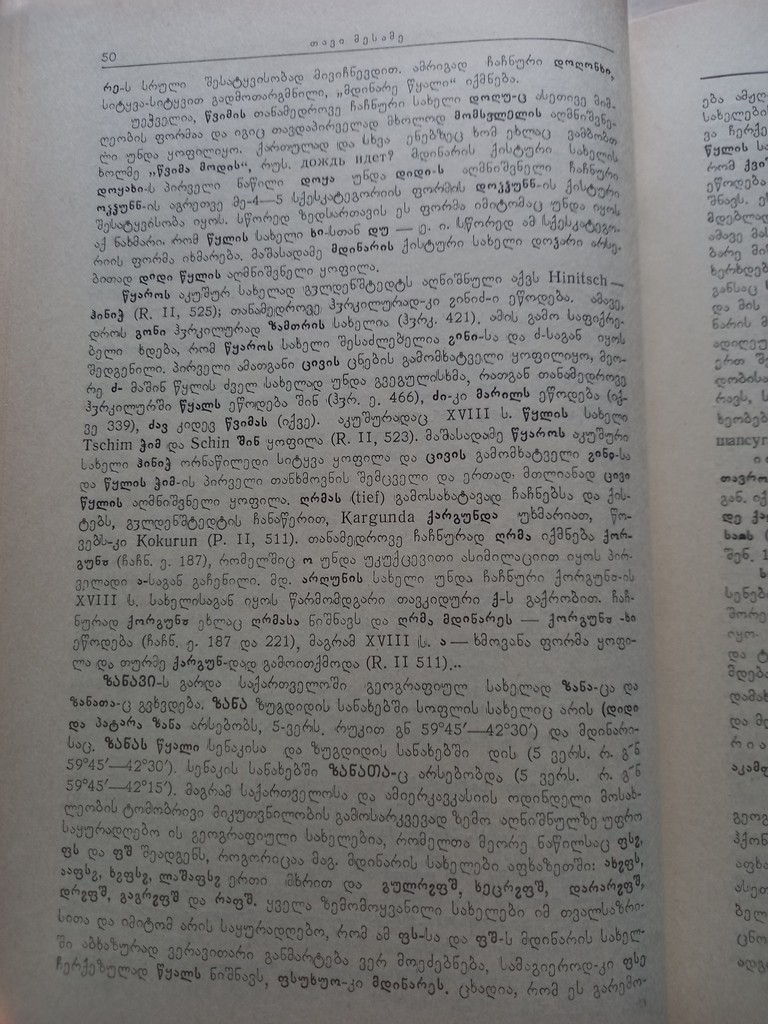 50
თავი მესამე
რე-ს სრული შესატყვისობად მივიჩნევდით. ამრიგად ჩაჩნური დოღონხი,
სიტყვა-სიტყვით გადმოთარგმნილი, „მდინარე წყალი“ იქმნება.
უეჭველია, წვიმის თანამედროვე ჩაჩნური სახელი დოღუ-ც ასეთივე მიმ-
ღეობის ფორმაა და იგიც თავდაპირველად მხოლოდ მომსვლელის აღმნიშვნე-
ლი უნდა ყოფილიყო. ქართულად და სხვა ენებზეც ხომ ეხლაც ვამბობთ
ხოლმე „წვიმა მოდის“, რუს. дождь идет? მდინარის ქისტური სახელის
დოყახი-ს პირველი ნაწილი დოყა უნდა დიდი-ს აღმნიშვნელი ჩაჩნური
ოკჴუნნ-ის აგრეთვე მე-4—5 სქესკატეგორიის ფორმის დოკჴუნნ-ის ქისტური
შესატყვისობა იყოს. სწორედ ზედსართავის ეს ფორმა იმიტომაც უნდა იყოს
აქ ნახმარი, რომ წყლის სახელი ხი-სთან დუ — ე. ი. სწორედ ამ სქესკატეგო-
რიის ფორმა იხმარება. მაშასადამე მდინარის ქისტური სახელი დოჴახი არსე-
ბითად დიდი წყლის აღმნიშვნელი ყოფილა.
წყაროს აკუშურ სახელად გჳლდენშტედტს აღნიშნული აქვს Hinitsch —
ჰინიჭ (R. II, 525); თანამედროვე ჰჳრკილურად-კი გინიძ-ი ეწოდება. ამავე,
დროს გონი ჰჳრკილურად ზამთრის სახელია (ჰჳრკ. 421). ამის გამო საფიქრე-
ბელი ხდება, რომ წყაროს სახელი შესაძლებელია გინი-სა და ძ-საგან იყოს
შედგენილი. პირველი ამათგანი ცივის ცნების გამომხატველი ყოფილიყო, მეო-
რე ძ- მაშინ წყლის ძველ სახელად უნდა გვეგულისხმა, რათგან თანამედროვე
ჰჳრკილურში წყალს ეწოდება შინ (ჰჳრ. ე. 466), ძი-კი მარილს ეწოდება (იქ-
ვე 339), ძავ კიდევ წვიმას (იქვე). აკუშურადაც XVIII ს. წყლის სახელი
Tschim ჭიმ და Schin შინ ყოფილა (R. II, 523). მაშასადამე წყაროს აკუშური
სახელი ჰინიჭ ორნაწილედი სიტყვა ყოფილა და ცივის გამომხატველი გინი-სა
და წყლის ჭიმ-ის პირველი თანხმოვნის შემცველი და ერთად მთლიანად ცივი
წყლის აღმნიშვნელი ყოფილა. ღრმას (tief) გამოსახატავად ჩაჩნებსა და ქის-
ტებს, გჳლდენშტედტის ჩანაწერით, Kargunda ქარგუნდა უხმარიათ, წო-
ვებს-კი Kokurun (P. II, 511). თანამედროვე ჩაჩნურად ღრმა იქმნება ქორ-
გუნჲ (ჩაჩნ. ე. 187), რომელშიც ო უნდა უკუქცევითი ასიმილაციით იყოს პირ-
ველადი ა-საგან გაჩენილი. მდ. არღუნის სახელი უნდა ჩაჩნური ქორგუნჲ-ის
XVIII ს. სახელისაგან იყოს წარმომდგარი თავკიდური ქ-ს გაქრობით. ჩაჩ-
ნურად ქორგუნჲ ეხლაც ღრმასა ნიშნავს და ღრმა მდინარეს — ქორგუნჲ -ხი
ეწოდება (ჩაჩნ. ე. 187 და 221), მაგრამ XVIII ს. ა — ხმოვანა ფორმა ყოფი-
ლა და თურმე ქარგუნ-დად გამოითქმოდა (R. II 511)...
ზანავი-ს გარდა საქართველოში გეოგრაფიულ სახელად ზანა-ცა და
ზანათა-ც გვხვდება. ზანა ზუგდიდის სანახებში სოფლის სახელიც არის (დიდი
და პატარა ზანა არსებობს, 5-ვერს. რუკით გნ 59°45′—42°30′) და მდინარი-
საც. ზანას წყალი სენაკისა და ზუგდიდის სანახებში დის (5 ვერს. რ. გ~ნ
59°45′—42°30′). სენაკის სანახებში ზანათა-ც არსებობდა (5 ვერს. რ. გ~ნ
59°45′—42°15′). მაგრამ საქართველოსა და ამიერკავკასიის ოდინდელი მოსახ-
ლეობის ტომობრივი მიკუთვნილობის გამოსარკვევად ზემო აღნიშნულზე უფრო
საყურადღებო ის გეოგრაფიული სახელებია, რომელთა მეორე ნაწილსაც ფსჷ,
ფს და ფშ შეადგენს, როგორიცაა მაგ. მდინარის სახელები აფხაზეთში: ახჷფს,
ააფსჷ, ხჷფსჷ, ლაშაფსჷ ერთი მხრით და გულრჷფშ, ხეცრჷფშ, დარარჷფშ,
დრჷფშ, გაგრჷფშ და რაფშ. ყველა ზემომოყვანილი სახელები იმ თვალსაზრი-
სითა და იმიტომ არის საყურადღებო, რომ ამ ფს-სა და ფშ-ს მდინარის სახელ-
ში აბხაზურად ვერავითარი განმარტება ვერ მოეძებნება, სამაგიეროდ-კი ფსე
ჩერქეზულად წყალს ნიშნავს, ფსუხუო-კი მდინარეს. ცხადია, რომ ეს გარემო-